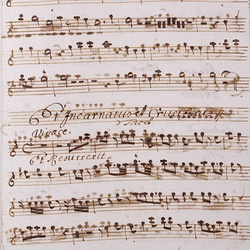 Et Incarnatus et Crucifixus
tacet
Vivace.
Et Resurrexit